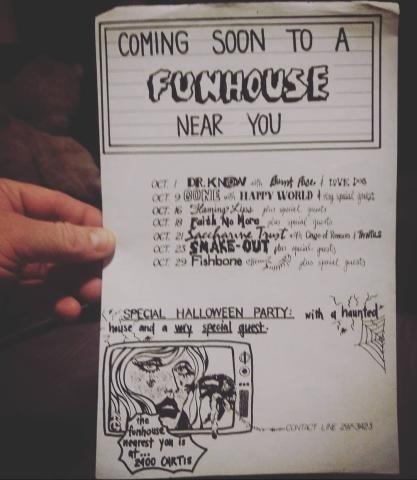 COMING SOON TO A
FUNHOUSE
NEAR YOU
OCT. 1 DR. KNOW with Burnt Face & LOVE DOG
OCT. 9 GONE with HAPPY WORLD & very special guest
OCT. 16 Flaming Lips plus special guests
OCT. 18 Faith No More plus special guests
OCT. 21 Saccharine Trust with Cage of Reason & THRILLS
OCT. 23 SNAKE-OUT plus special guests
OCT. 29 Fishbone plus special guests
SPECIAL HALLOWEEN PARTY: with a haunted
house and a very special guest.
the
funhouse
nearest you is
at...
2400 CURTIS
CONTACT LINE 298-3423